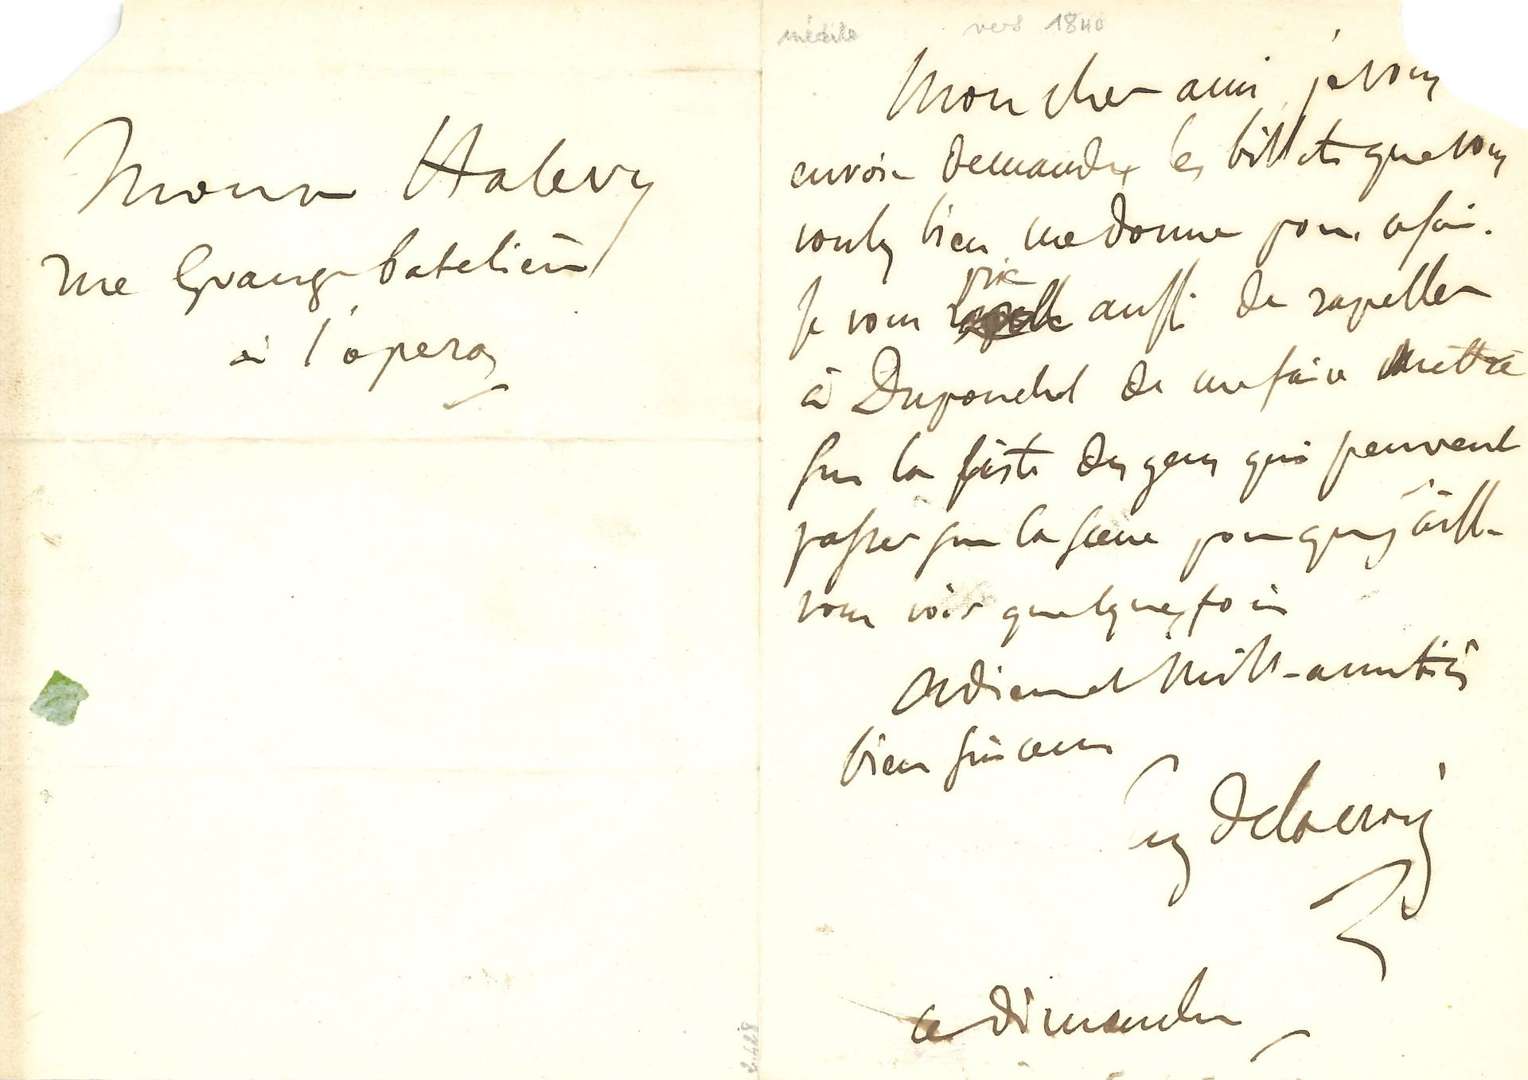 Monsieur Halevy
rue Grange batelière
à l'opera
inédite vers 1840
Mon cher ami, je vous
envoie demander les billets que vous
voulez bien me donner pour ce soir.
Je vous prie aussi de rapeller
à Duponchel de me faire mettre
sur la liste des gens qui peuvent
passer sur la scène pour que j'aille
vous voir quelquefois
Adieu et mille amitiés
bien sincères
Eug Delacroix
ce dimanche
2.428